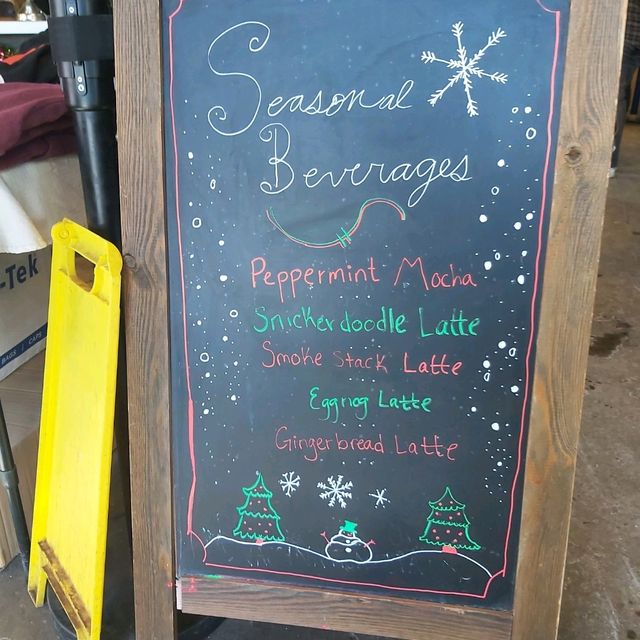 Seasonal
Beverages
Peppermint Mocha
Snickerdoodle Latte
Smoke Stack Latte
Eggnog Latte
Gingerbread Latte
-Tek
BAGS | CAPS